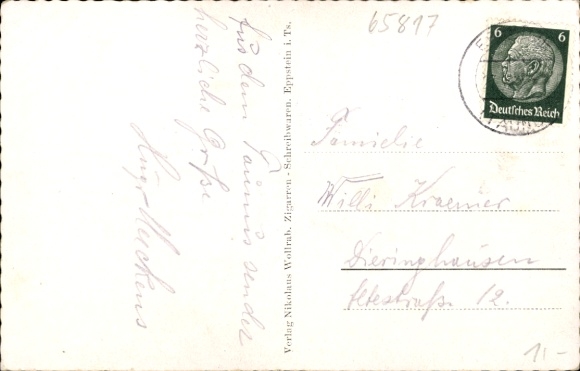 65817
Aus dem Taunus sendet
herzliche Grüße
Verlag Nikolaus Wollrab, Zigarren - Schreibwaren, Eppstein i. Ts.
6 6
Deutsches Reich
Familie
Willi Kraemer
Dieringhausen
12.
11-